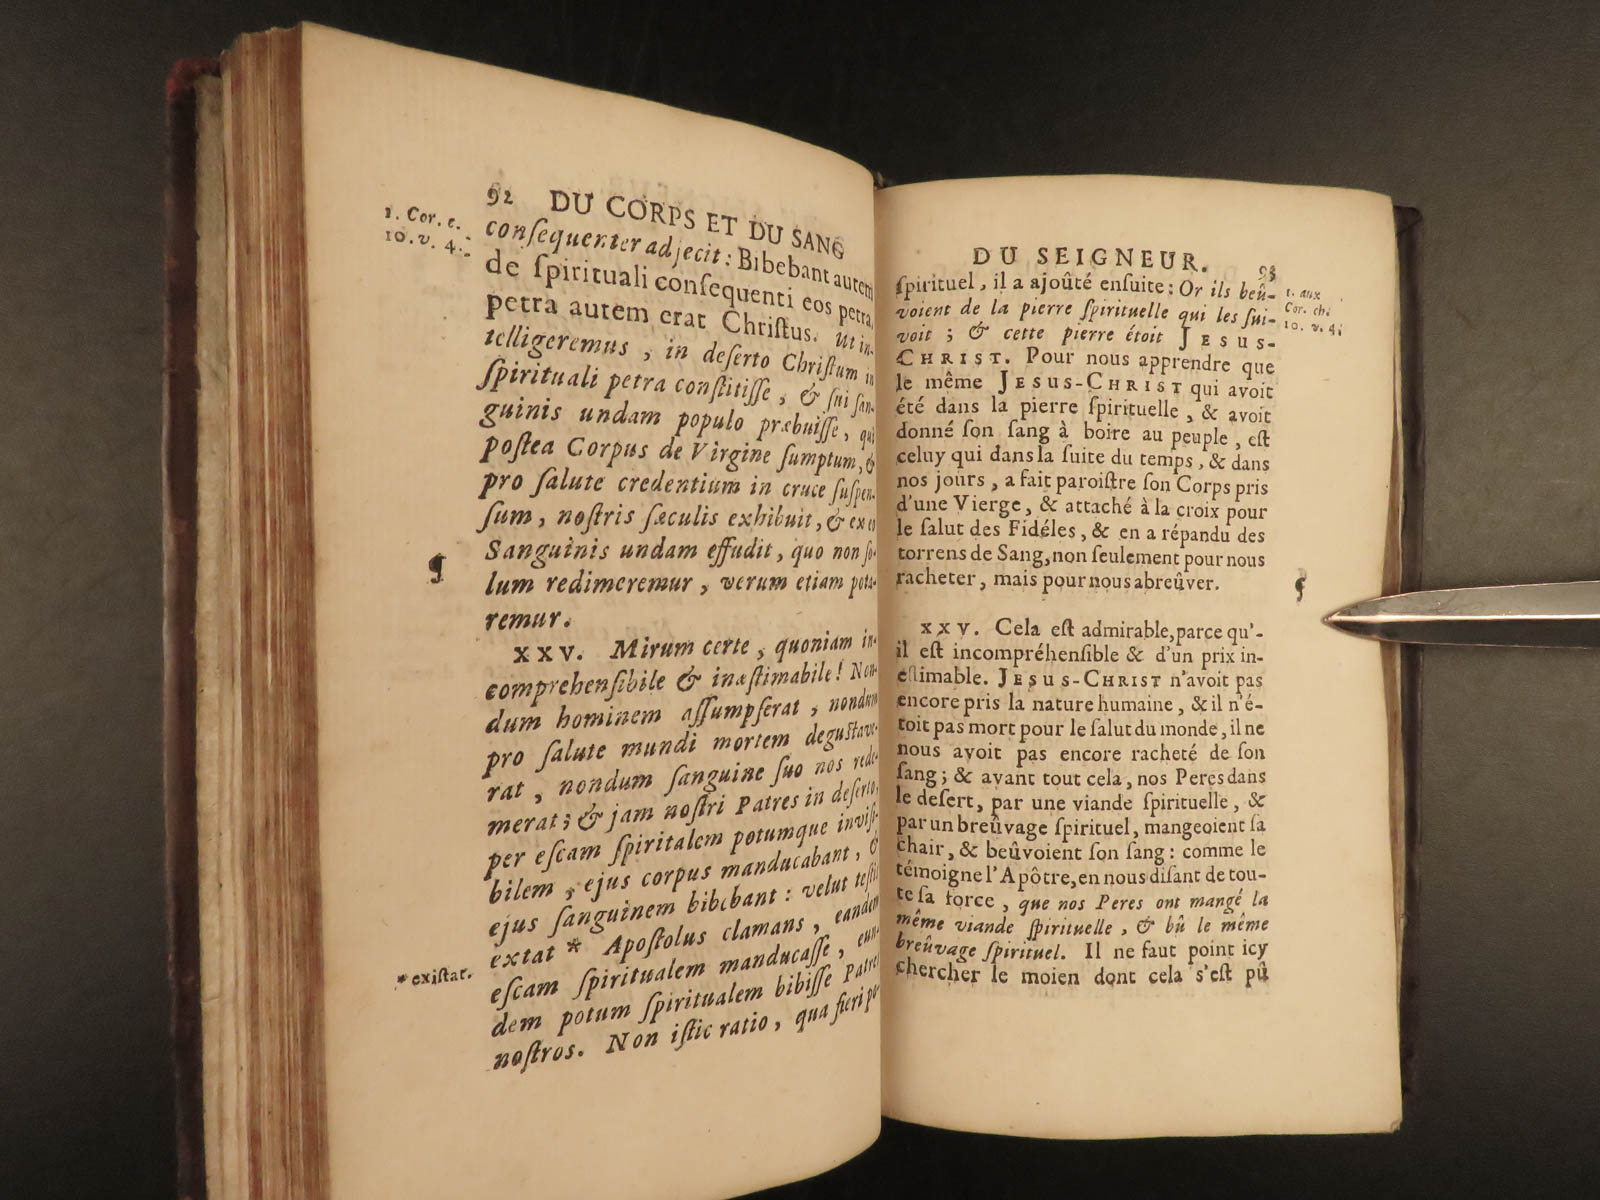 92 DU CORPS ET DU SANG
1. Cor. c.
10. v. 4.
conſequenter adjecit : Bibebant autem
de ſpirituali conſequenti eos petra,
petra autem erat Chriſtus. Ut in-
telligeremus , in deſerto Chriſtum in
ſpirituali petra conſtitiſſe , & ſui ſan-
guinis undam populo præbuiſſe , qui
poſtea Corpus de Virgine ſumptum, &
pro ſalute credentium in cruce ſuſpen-
ſum , noſtris ſæculis exhibuit, & ex eo
Sanguinis undam effudit , quo non ſo-
lum redimeremur , verum etiam pota-
remur.
¶
XXV. Mirum certe , quoniam in-
comprehenſibile & inæſtimabile ! Non-
dum hominem aſſumpſerat , nondum
pro ſalute mundi mortem deguſtave-
rat , nondum ſanguine ſuo nos rede-
merat ; & jam noſtri Patres in deſerto,
per eſcam ſpiritalem potumque inviſi-
bilem , ejus corpus manducabant , &
ejus ſanguinem bibebant : velut teſtis
extat * Apoſtolus clamans , eandem
* exiſtat.
eſcam ſpiritualem manducaſſe , eun-
dem potum ſpiritualem bibiſſe Patres
noſtros. Non iſtic ratio , qua fieri po-
DU SEIGNEUR. 93
ſpirituel , il a ajoûté enſuite : Or ils beû-
1. aux
Cor. ch.
10. v. 4.
voient de la pierre ſpirituelle qui les ſui-
voit ; & cette pierre étoit JESUS-
CHRIST. Pour nous apprendre que
le même JESUS-CHRIST qui avoit
été dans la pierre ſpirituelle , & avoit
donné ſon ſang à boire au peuple , eſt
celuy qui dans la ſuite du temps , & dans
nos jours , a fait paroiſtre ſon Corps pris
d'une Vierge , & attaché à la croix pour
le ſalut des Fidéles , & en a répandu des
torrens de Sang, non ſeulement pour nous
racheter , mais pour nous abreûver.
¶
XXV. Cela eſt admirable, parce qu'-
il eſt incompréhenſible & d'un prix in-
eſtimable. JESUS-CHRIST n'avoit pas
encore pris la nature humaine , & il n'é-
toit pas mort pour le ſalut du monde , il ne
nous avoit pas encore racheté de ſon
ſang ; & avant tout cela , nos Peres dans
le deſert , par une viande ſpirituelle , &
par un breûvage ſpirituel , mangeoient ſa
chair , & beûvoient ſon ſang : comme le
témoigne l'Apôtre, en nous diſant de tou-
te ſa force , que nos Peres ont mangé la
même viande ſpirituelle , & bû le même
breûvage ſpirituel. Il ne faut point icy
chercher le moien dont cela s'eſt pû